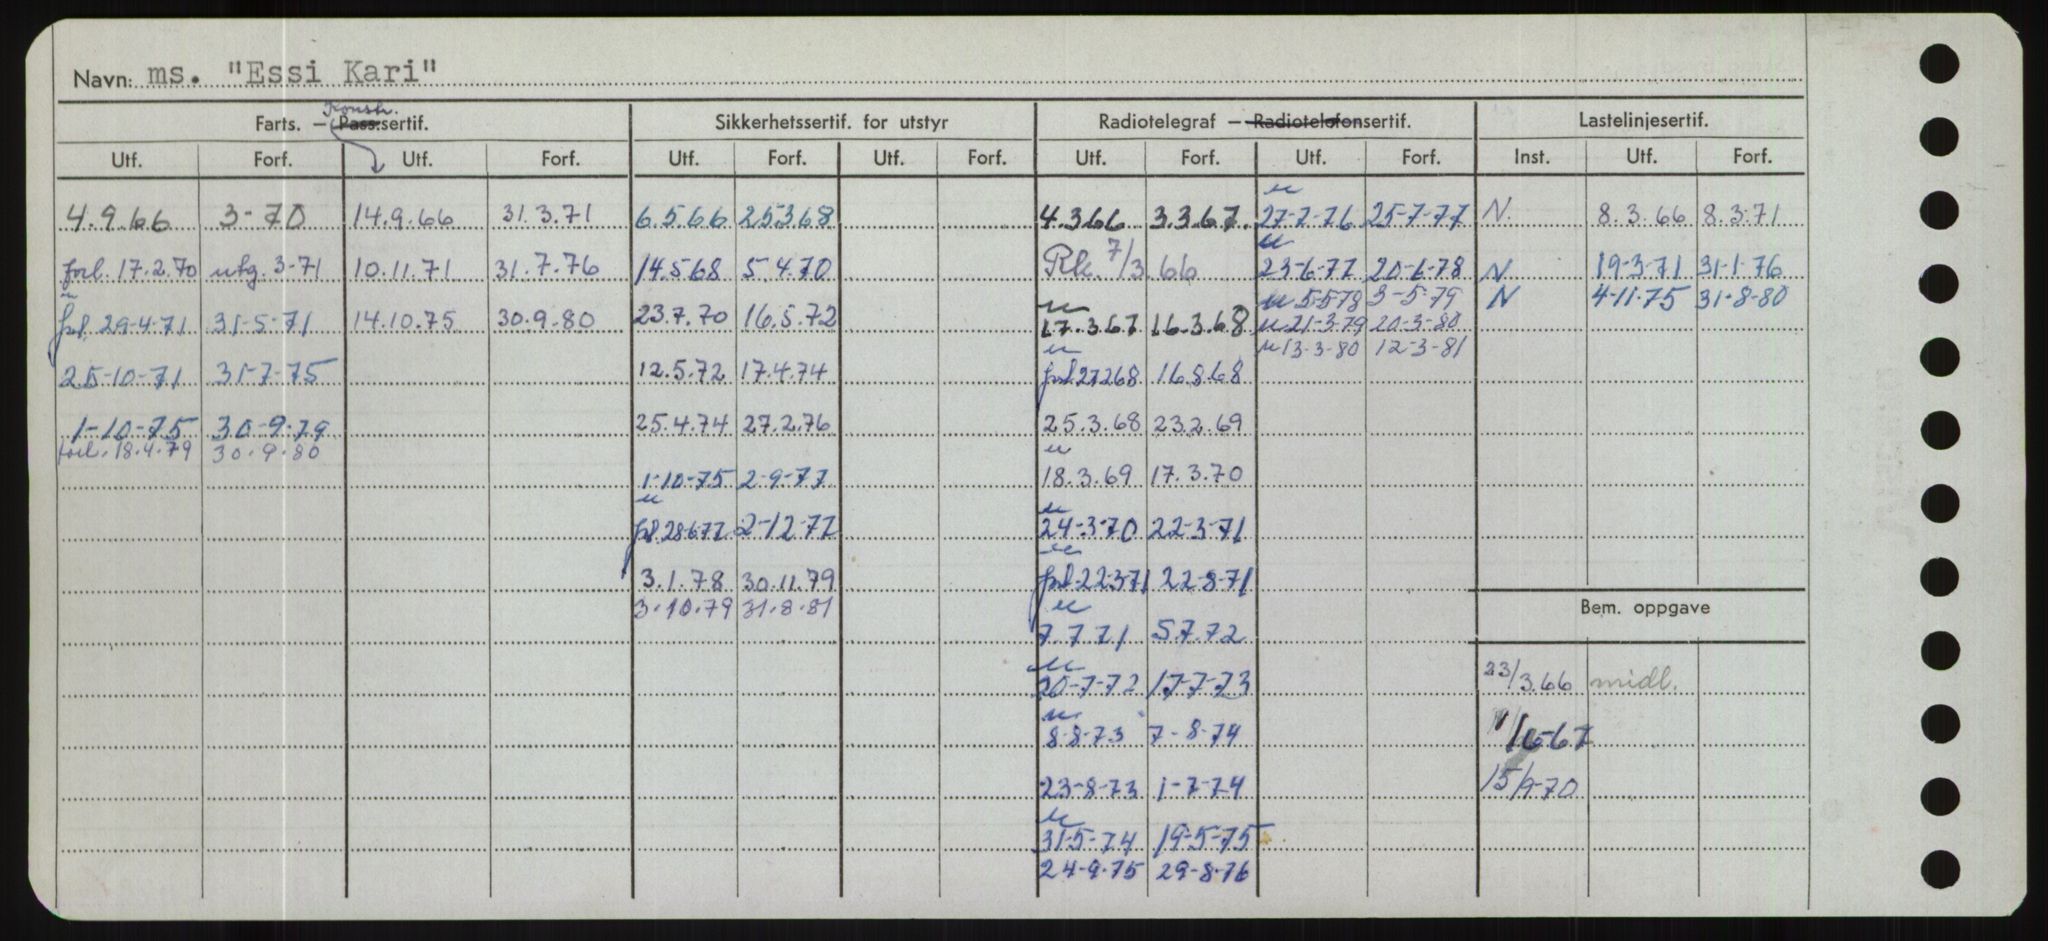 Navn: ms. "Essi Kari"
Konstr.
Farts. — Pass.sertif. Sikkerhetssertif. for utstyr Radiotelegraf — Radiotelefonsertif. Lastelinjesertif.
Utf. Forf. Utf. Forf. Utf. Forf. Utf. Forf. Utf. Forf. Utf. Forf. Inst. Utf. Forf.
u
4.9.66 3-70 14.9.66 31.3.71 6.5.66 25368 4.3.66 3.3.67. 27-7-76 25-7-77 N. 8.3.66 8.3.71
u
forl. 17.2.70 utg. 3-71 10.11.71 31.7.76 14.5.68 5.4.70 Rk. 7/3.66 23-6-77 20-6-78 N 19-3-71 31-1-76
u 5-5-78 3-5-79 N 4-11-75 31-8-80
u u
forl. 29-4-71 31-5-71 14.10.75 30.9.80 23.7.70 16.5.72 17.3.67 16.3.68 u 21-3-79 20-3-80
u u 13-3-80 12-3-81
25-10-71 31-7-75 12.5.72 17.4.74 forl 27268 16868
1-10-75 30-9-79 25.4.74 27.2.76 25.3.68 23.2.69
forl. 18.4.79 30.9.80 u
1-10-75 2-9-77 18.3.69 17.3.70
u u
forl. 28-6-77 2-12-77 24-3-70 22-3-71
u
3.1.78 30.11.79 forl-22371 22-8-71
3.10.79 31.8.81 u Bem. oppgave
7771 5772
u
20-7-72 17-7-73 23/3.66 midl.
u
8-8-73 7-8-74 /6-67
23-8-73 1-7-74 15/9-70
u
31-5-74 19-5-75
24-9-75 29-8-76